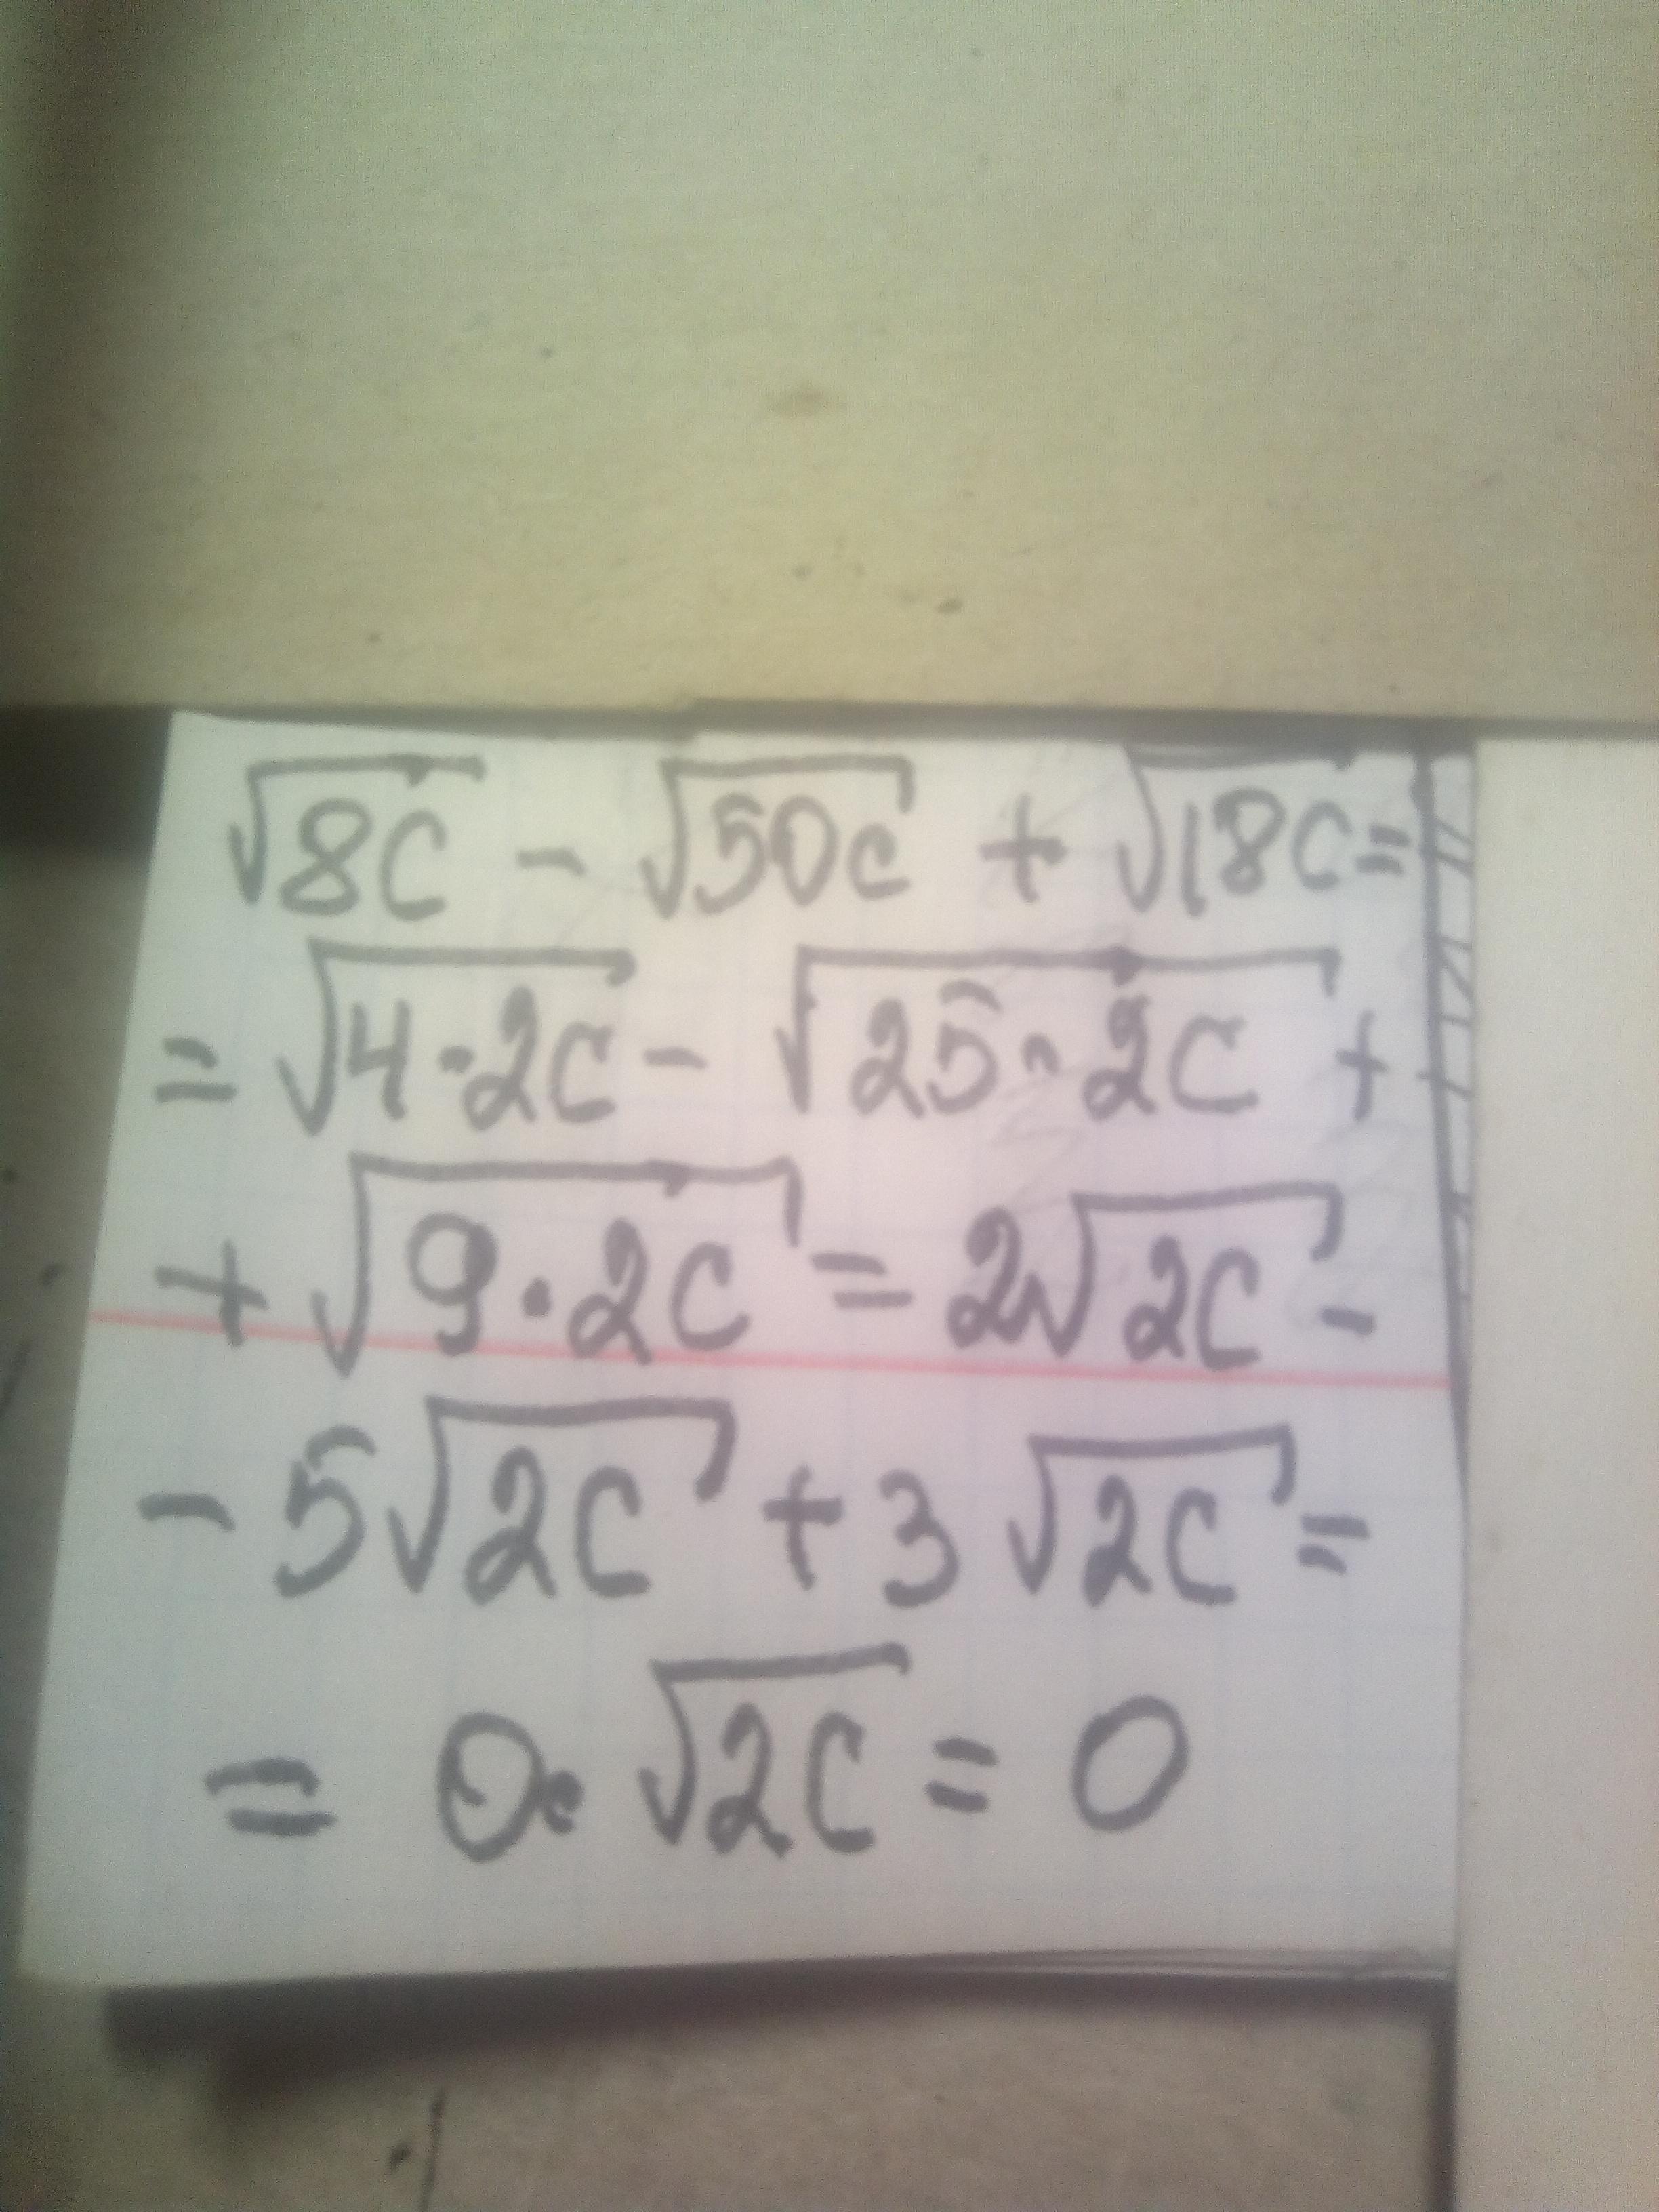 √8c - √50c + √18c =
= √4·2c - √25·2c +
+ √9·2c = 2√2c -
- 5√2c + 3√2c =
= 0·√2c = 0